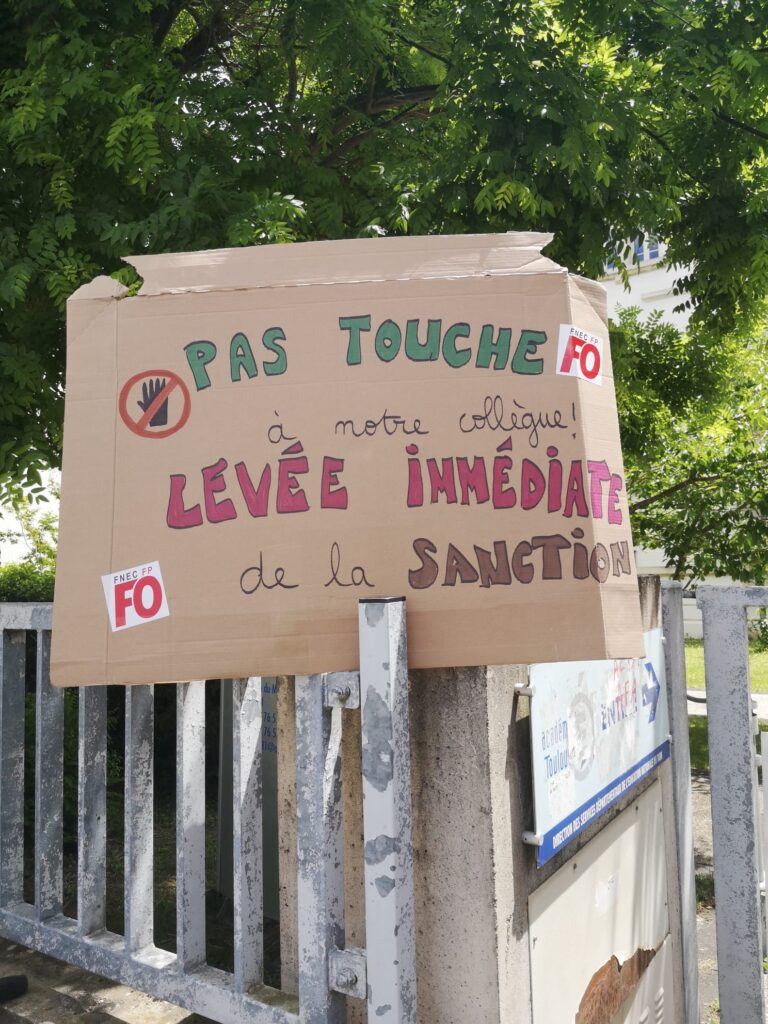 PAS TOUCHE
à notre collègue!
LEVÉE IMMÉDIATE
de la SANCTION
FNEC FP
FO
FNEC FP
FO
ENTRÉE
DIRECTION DES SERVICES DÉPARTEMENTAUX DE L'ÉDUCATION NATIONALE DU TARN